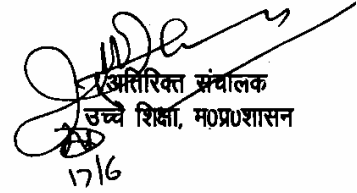 अतिरिक्त संचालक
उच्च शिक्षा, म0प्र0शासन
17/6